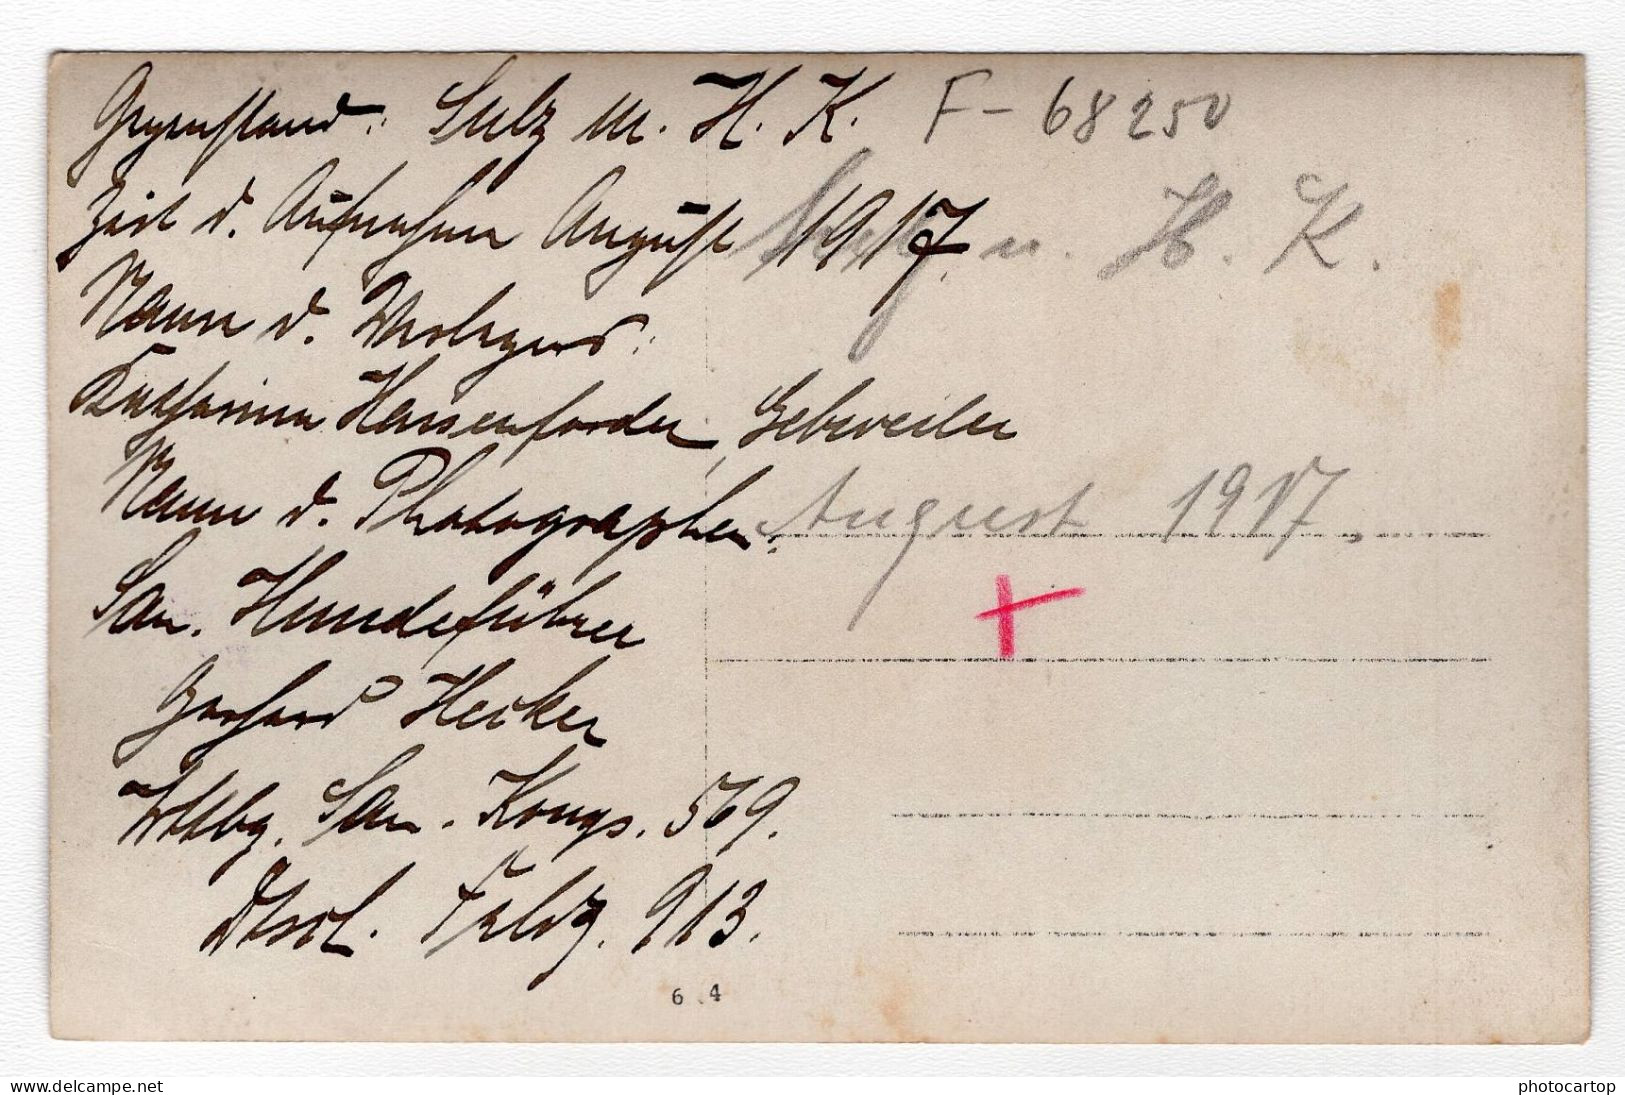 Gegenstand: Sulz m. H. K. F- 68250
Zeit d. Aufnahme August 1917.
u. H. K.
Name d. Verlegers:
Katharina Hassenforder, Gebweiler
Name d. Photographen:
August 1917.
San. Hundeführer
Gerhard Hecker
Wttbg. San. Komp. 569.
Dtsch. Feldp. 913.
6 4
delcampe.net
photocartop